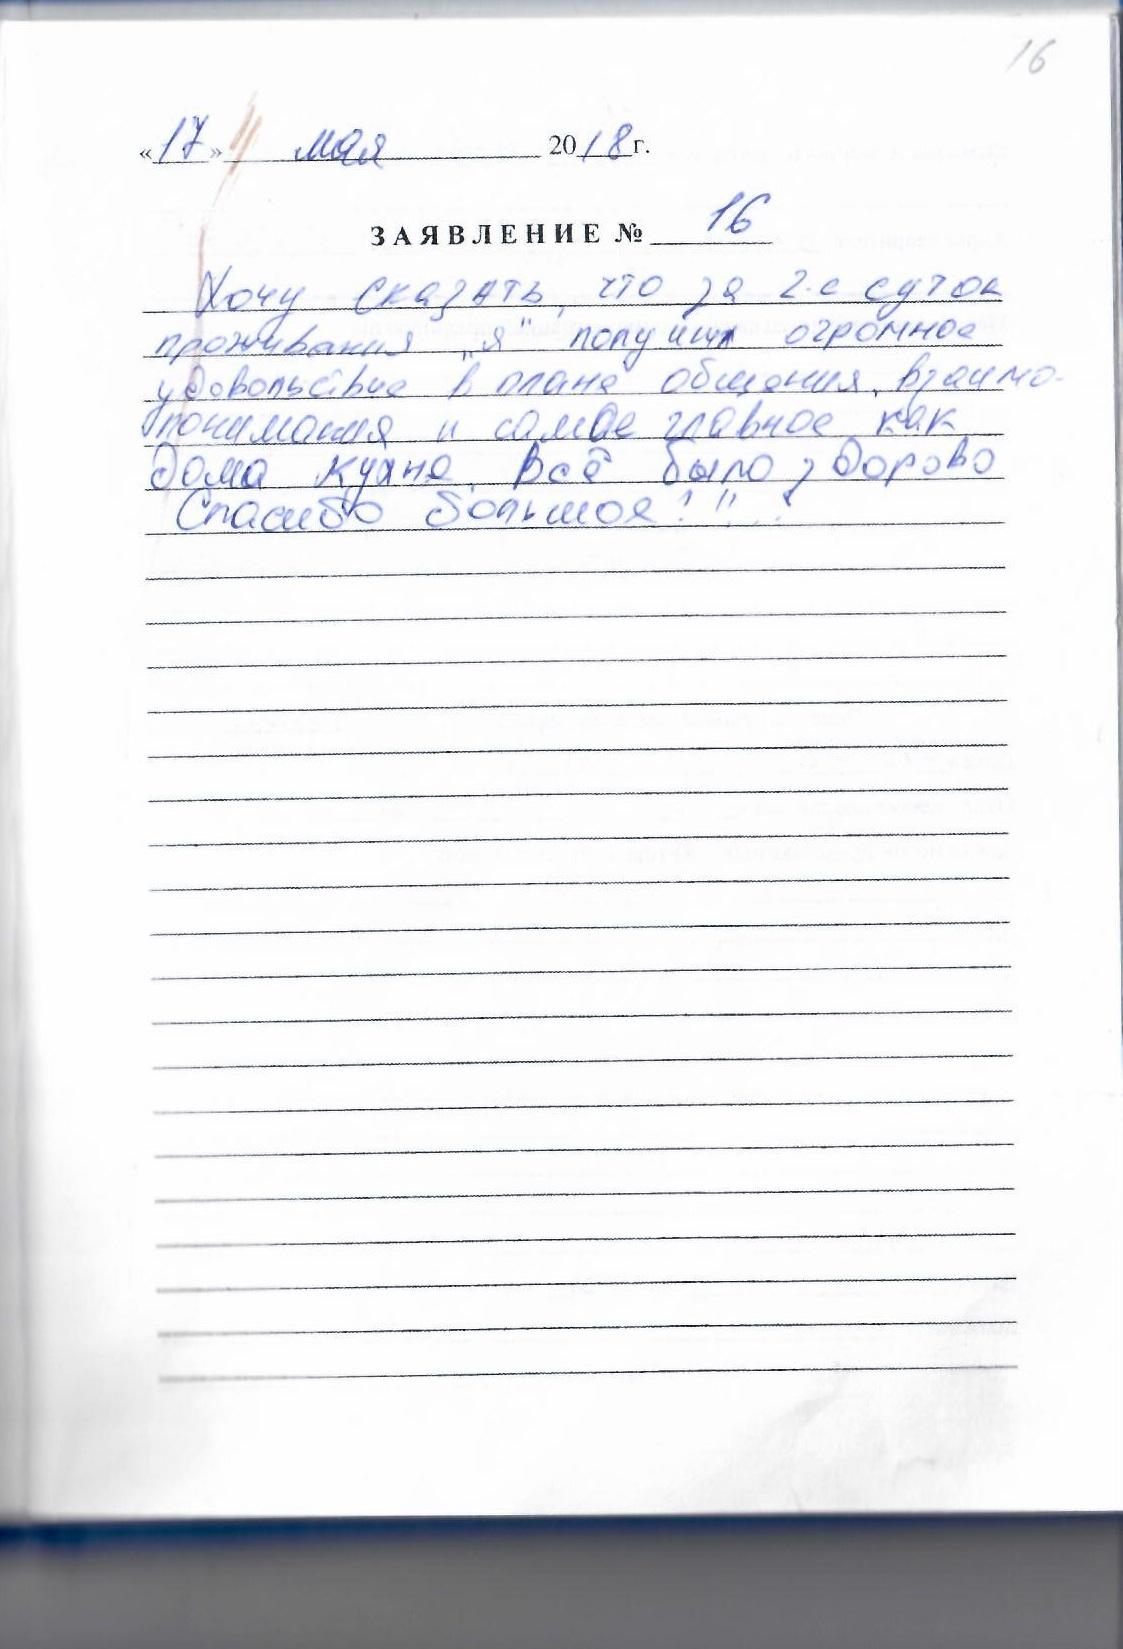 16
«17» мая 2018г.
ЗАЯВЛЕНИЕ № 16
Хочу сказать, что за 2-е суток
проживания "я" получил огромное
удовольствие в плане общения, взаимо-
понимания и самое главное как
дома кухне. Всё было здорово
Спасибо большое! !! !